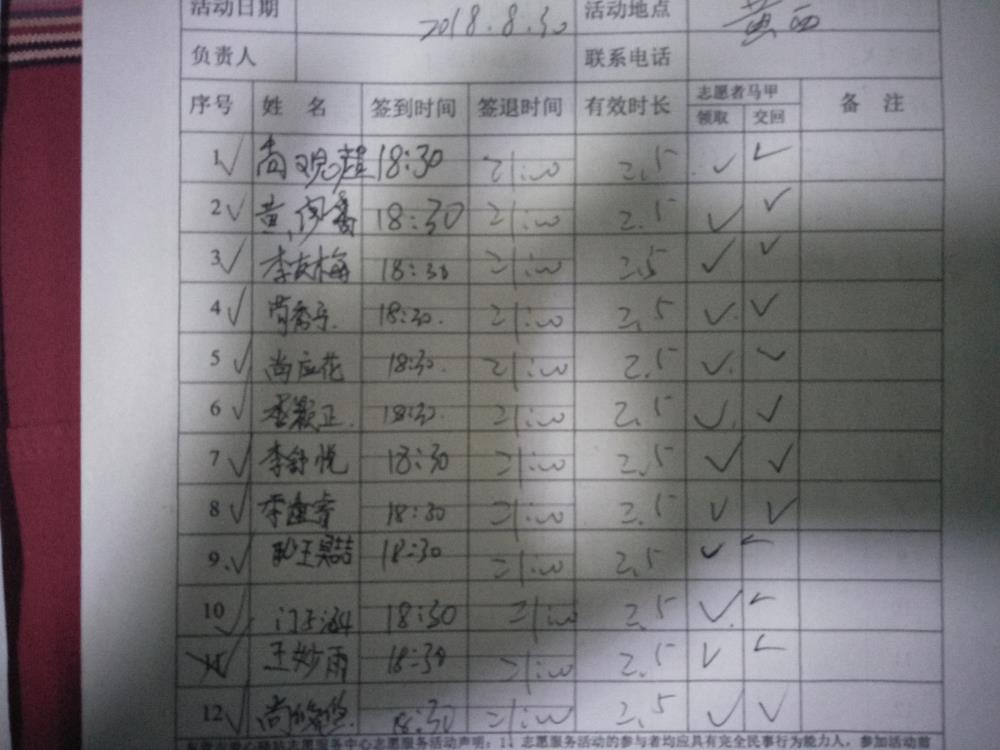 活动日期 2018.8.30 活动地点 黄西
负责人 联系电话
序号 姓 名 签到时间 签退时间 有效时长 志愿者马甲 备 注
领取 交回
1 ✓ 尚观超 18:30 21:00 2.5 ✓ ✓
2 ✓ 18:30 21:00 2.5 ✓ ✓
3 ✓ 李友梅 18:30 21:00 2.5 ✓ ✓
4 ✓ 18:30. 21:00 2.5 ✓ ✓
5 ✓ 尚应花 18:30. 21:00 2.5 ✓ ✓
6 ✓ 18:30. 21:00 2.5 ✓ ✓
7 ✓ 李舒悦 18:30 21:00 2.5 ✓ ✓
8 ✓ 18:30 21:00 2.5 ✓ ✓
9 ✓ 18:30 21:00 2.5 ✓ ✓
10 ✓ 18:30 21:00 2.5 ✓ ✓
11 ✓ 王妙雨 18:30 21:00 2.5 ✓ ✓
12 ✓ 18:30 21:00 2.5 ✓ ✓
志愿服务中心志愿服务活动声明：1、志愿服务活动的参与者均应具有完全民事行为能力人，参加活动前